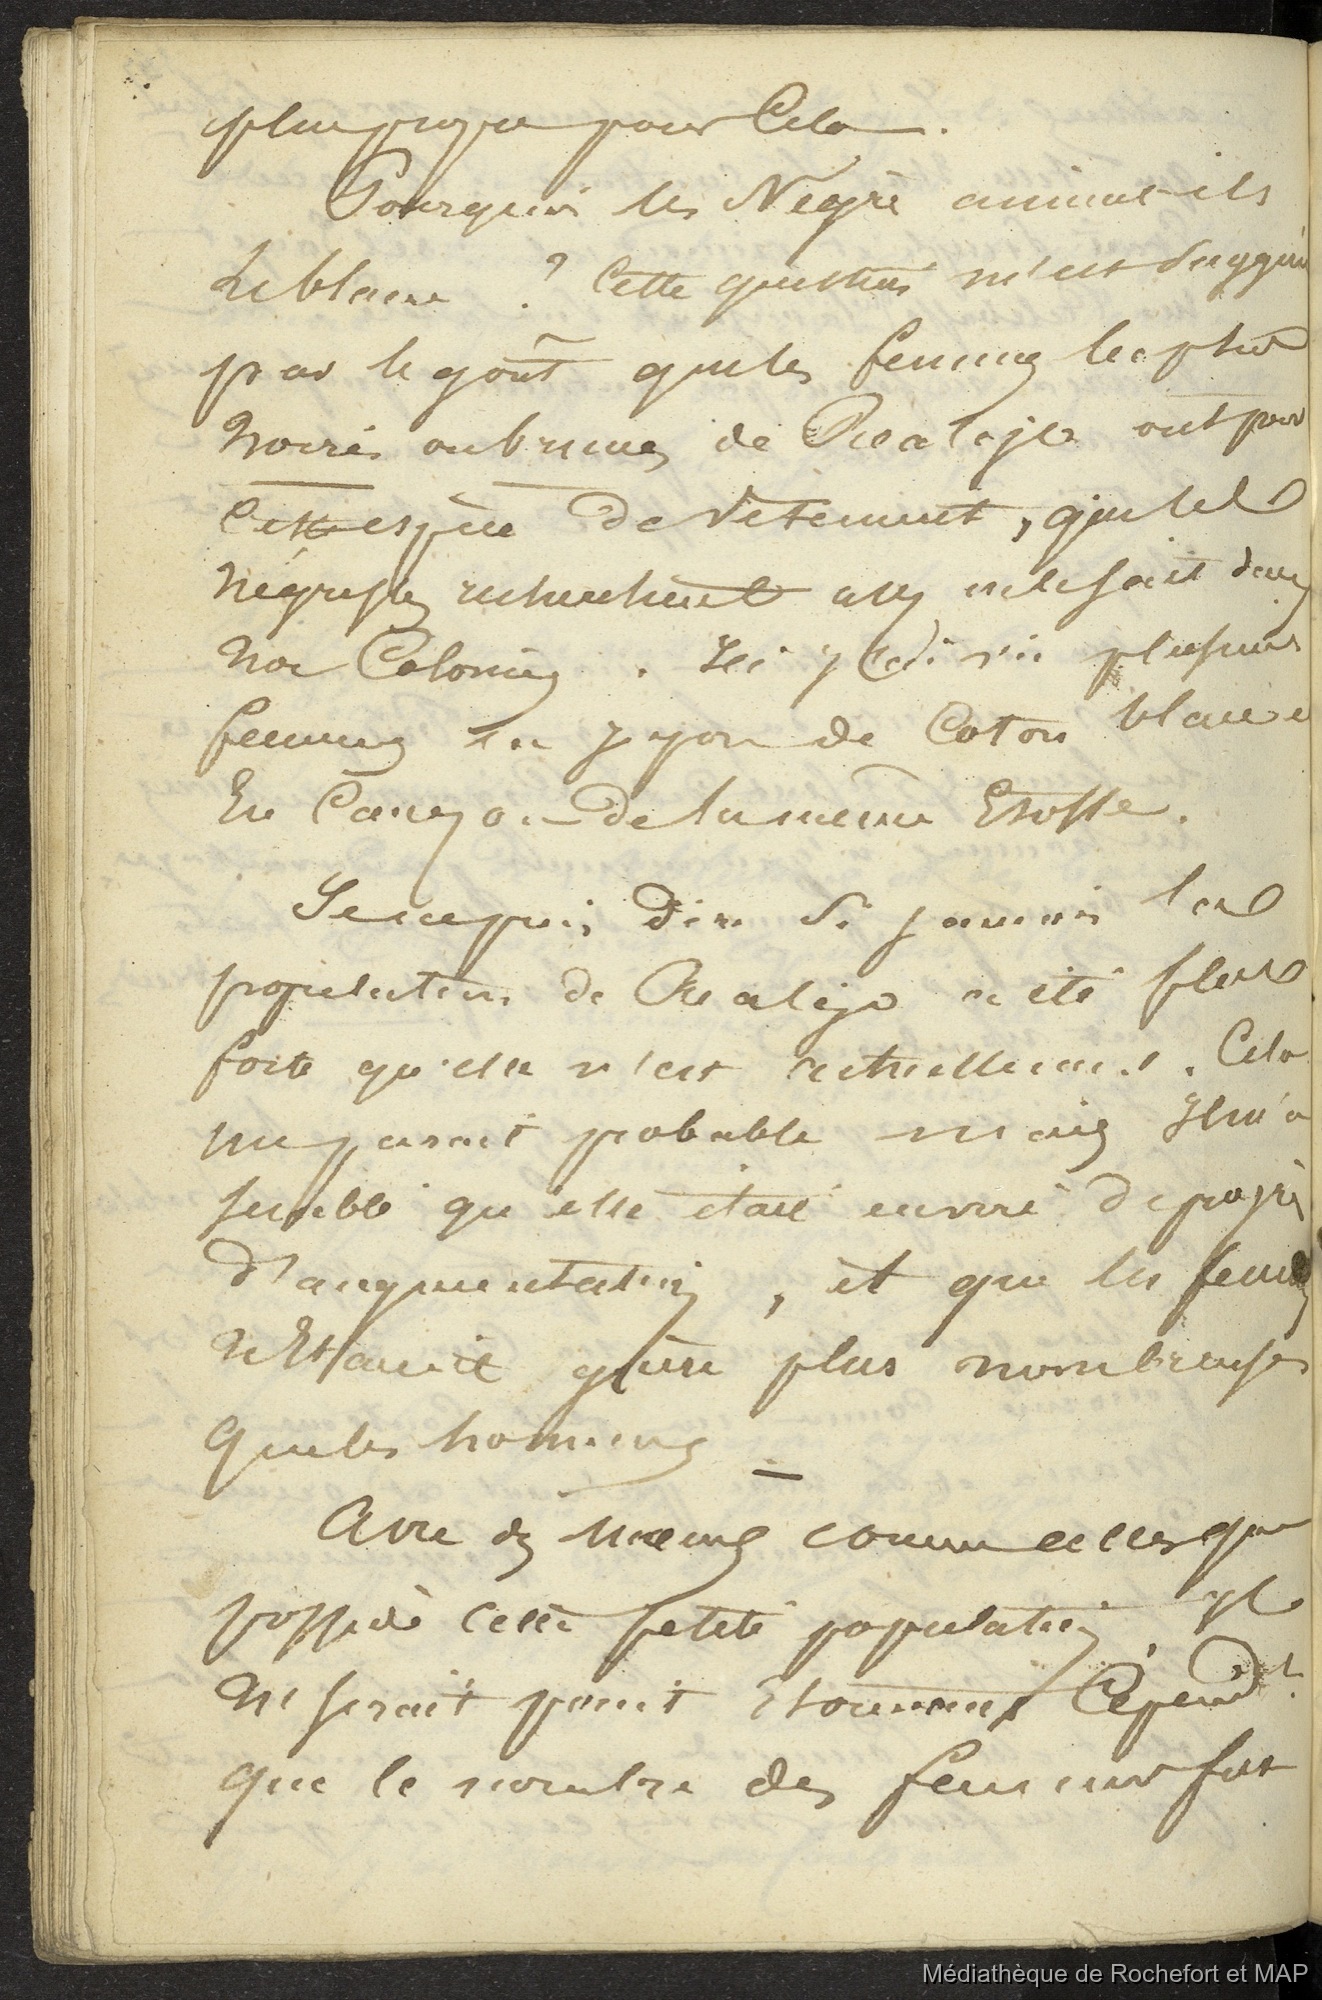 plus propre pour Cela.
Pourquoi les Negrè aiment-ils
Le blanc ? Cette question m'est suggéré
par le goût que les femmes les plus
noires ou brunes de Réaléjo ont pour
Cette espèce de Vetement, que les
négresses recherchent aussi dans
nos Colonies. Ici j'ai vu plusieurs
femmes en jupon de Coton blanc
En Canezou de la meme Etoffe.
Je ne puis dire si jamais la
population de Réaléjo a été plus
forte qu'elle n'est actuellement. Cela
me parait probable mais Il m'a
semblé qu'elle était en voie de progrès
d'augmentation, et que les femmes
N'Etaient guère plus nombreuses
que les hommes —
Avec des moeurs comme celles que
possède cette petite population, Il
ne serait point Etonnant Cepend.t
que le nombre des femmes fut
Médiathèque de Rochefort et MAP